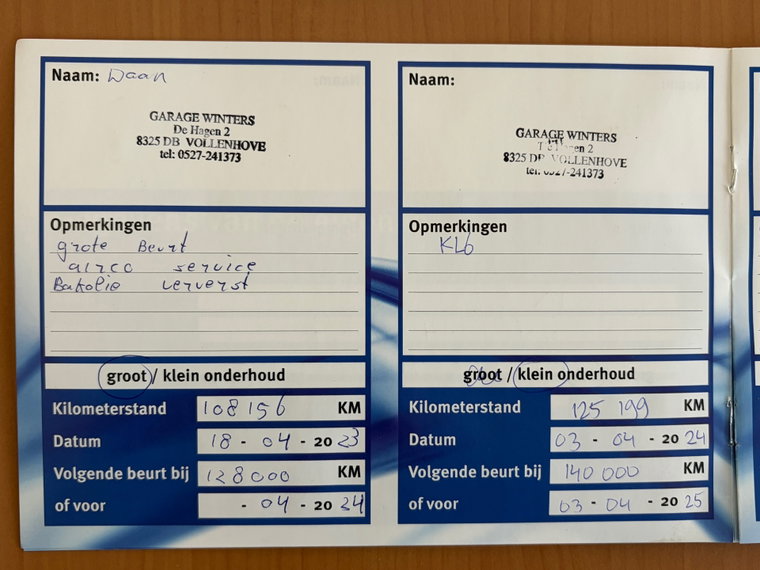 Naam: Daan
GARAGE WINTERS
De Hagen 2
8325 DB VOLLENHOVE
tel: 0527-241373
Opmerkingen
grote Beurt
airco service
Bakolie ververst
groot / klein onderhoud
Kilometerstand 108 156 KM
Datum 18 - 04 - 20 23
Volgende beurt bij 128000 KM
of voor - 04 - 20 24
Naam:
GARAGE WINTERS
2
8325 DB VOLLENHOVE
tel: 0527-241373
Opmerkingen
KLb
groot / klein onderhoud
Kilometerstand 125 199 KM
Datum 03 - 04 - 20 24
Volgende beurt bij 140 000 KM
of voor 03 - 04 - 20 25